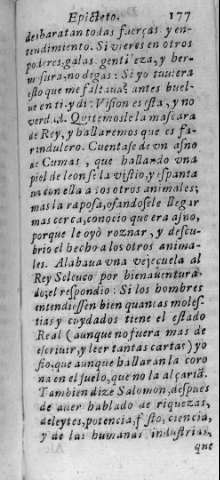 Epicteto. 177
desbaratan todas fuerças y en-
tendimiento. Si vieres en otros
poderes, galas, gentileza, y her-
mosura, no digas: Si yo tuuiera
esto que me falta
ue en ti, y di: Vision es esta, y no
verdad. Quitemosle la mascara
de Rey, y hallaremos que es fa-
randulero. Cuentase de vn asno
de Cumas, que hallando vna
piel de leon se la vistio, y espanta
ua con ella a los otros animales;
mas la raposa, osandosele llegar
mas cerca, conocio que era asno,
porque le oyò roznar, y descu-
brio el hecho a los otros anima-
les. Alabaua vna vejecuela al
Rey Seleuco por bienauentura-
do; el respondio: Si los hombres
entendiessen bien quantas moles-
tias y cuydados tiene el estado
Real (aunque no fuera mas de
escriuir, y leer tantas cartas) yo
fio, que aunque hallaran la coro
na en el suelo, que no la alçariã.
Tambien dize Salomon, despues
de auer hablado de riquezas,
deleytes, potencia, fausto, ciencia,
y de las humanas industrias,
que